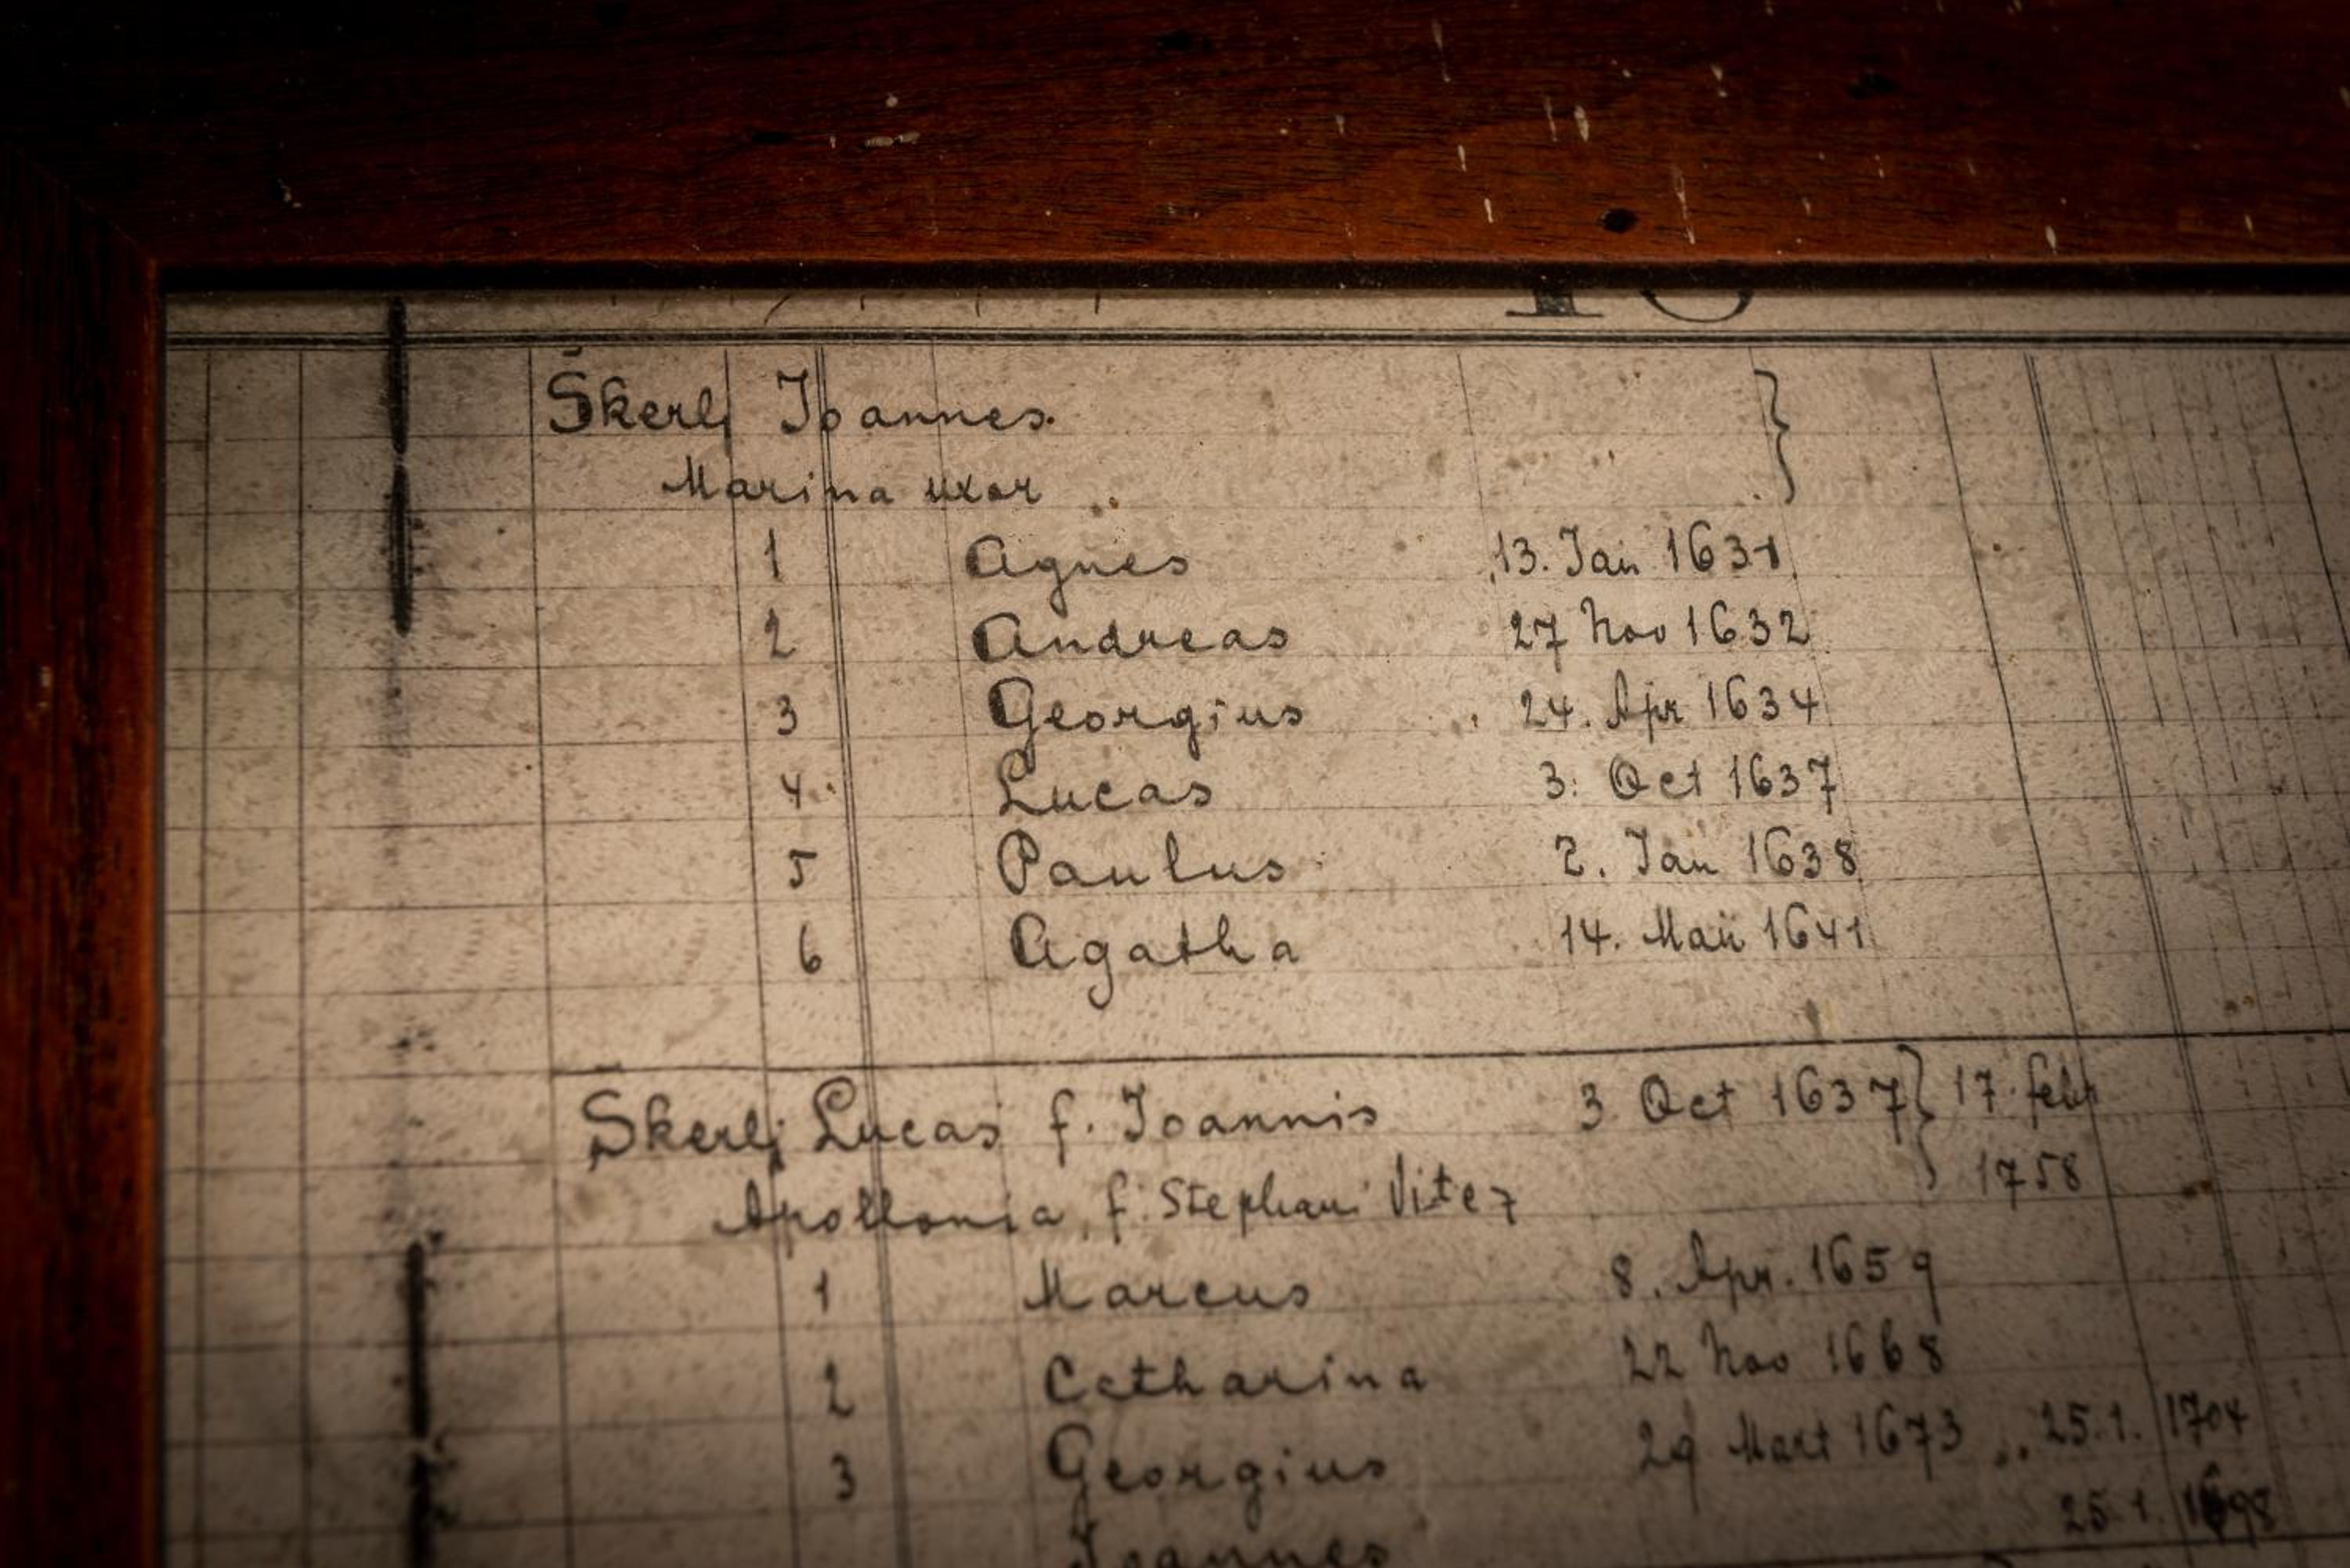 Škerlj Ioannes.
Marina uxor
1 Agnes 13. Ian 1631
2 Andreas 27 Nov 1632
3 Georgius 24. Apr 1634
4. Lucas 3. Oct 1637
5 Paulus 2. Ian 1638
6 Agatha 14. Maii 1641
Škerlj Lucas f. Ioannis 3 Oct 1637 17. febr
1758
Apollonia f. Stephani Vitez
1 Marcus 8. Apr. 1659
2 Catharina 22 Nov 1668
3 Georgius 29 Mart 1673 25.1. 1704
25.1. 1698
Ioannes